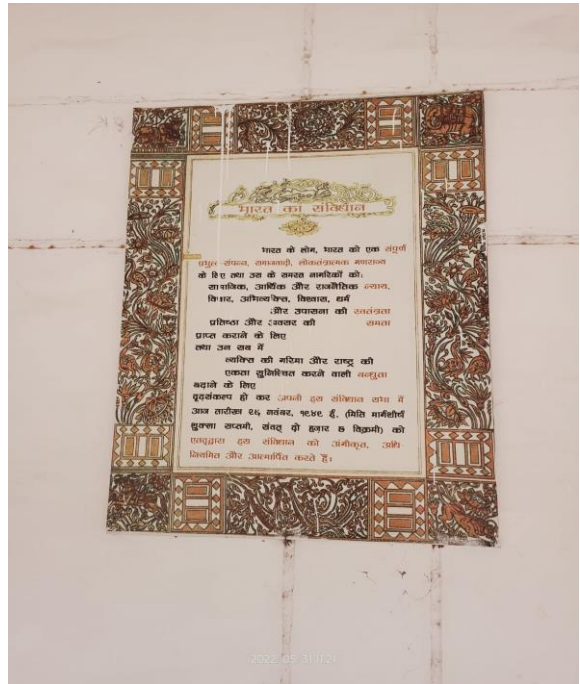 भारत का संविधान
भारत के लोग, भारत को एक संपूर्ण
प्रभुत्व-संपन्न, समाजवादी, लोकतंत्रात्मक गणराज्य
के लिए तथा उस के समस्त नागरिकों को:
सामाजिक, आर्थिक और राजनैतिक न्याय,
विचार, अभिव्यक्ति, विश्वास, धर्म
और उपासना की स्वतंत्रता
प्रतिष्ठा और अवसर की समता
प्राप्त कराने के लिए
तथा उन सब में
व्यक्ति की गरिमा और राष्ट्र की
एकता सुनिश्चित करने वाली बन्धुता
बढ़ाने के लिए
दृढ़संकल्प हो कर अपनी इस संविधान सभा में
आज तारीख २६ नवंबर, १९४९ ई. (मिति मार्गशीर्ष
शुक्ला सप्तमी, संवत् दो हज़ार छ विक्रमी) को
एतद्द्वारा इस संविधान को अंगीकृत, अधि
नियमित और आत्मार्पित करते हैं।
2022.05.31 11:21